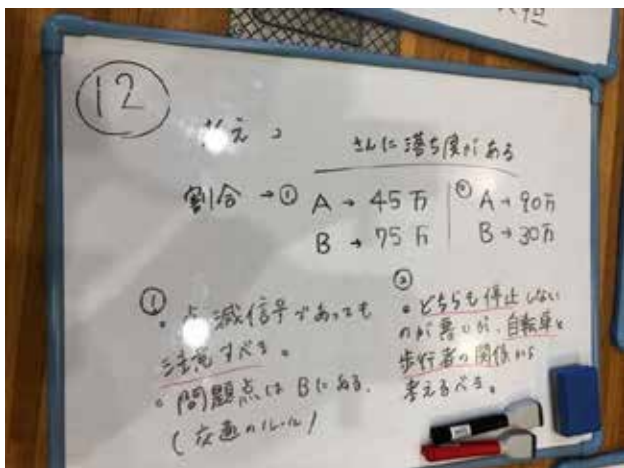 12
さんに落ち度がある
割合→① A→45万
B→75万
② A→90万
B→30万
①
・点滅信号であっても
注意すべき。
・問題点はBにある。
(交通のルール)
②
・どちらも停止しない
のが悪いが、自転車と
歩行者の関係から
考えるべき。